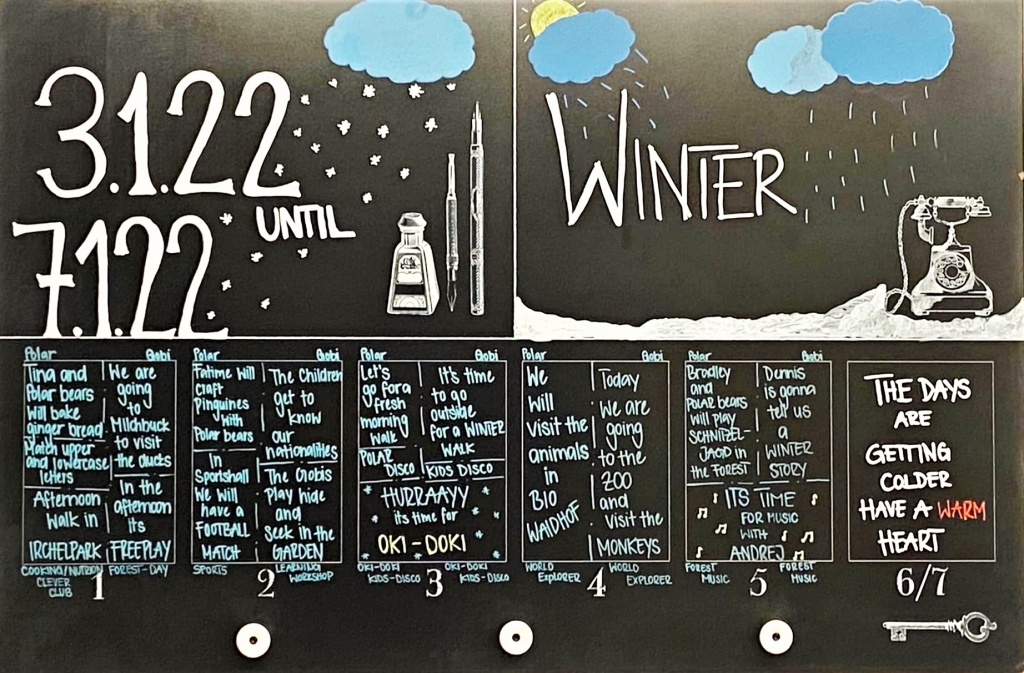 3.1.22
UNTIL
7.1.22
WINTER
Polar Gobi
Tina and
Polar bears
Will bake
ginger bread
Match upper
and lowercase
letters
Afternoon
Walk in
IRCHELPARK
We are
going
to
Milchbuck
to visit
the ducts
In the
afternoon
its
FREEPLAY
COOKING/NUTRION
CLEVER
CLUB
FOREST-DAY
1
Polar Gobi
Fatime Will
craft
Pinguines
with
Polar bears
In
Sportshall
We Will
have a
FOOTBALL
MATCH
The Children
get to
know
our
nationalities
The Gobis
Play hide
and
Seek in the
GARDEN
SPORTS
LEARNING
WORKSHOP
2
Polar Gobi
Let's
go for a
fresh
morning
Walk
POLAR
DISCO
It's time
to go
outside
for a WINTER
WALK
KIDS DISCO
HURRAAYY
its time for
OKI-DOKI
OKI-DOKI
KIDS-DISCO
OKI-DOKI
KIDS-DISCO
3
Polar Gobi
We
Will
visit the
animals
in
BIO
WAIDHOF
Today
We are
going
to the
ZOO
and
visit the
MONKEYS
WORLD
EXPLORER
WORLD
EXPLORER
4
Polar Gobi
Bradley
and
POLAR BEARS
will play
SCHNITZEL-
JAGD in
the FOREST
Dennis
is gonna
tell us
a
WINTER
STORY
ITS TIME
FOR MUSIC
WITH
ANDREJ
FOREST
MUSIC
FOREST
MUSIC
5
THE DAYS
ARE
GETTING
COLDER
HAVE A WARM
HEART
6/7